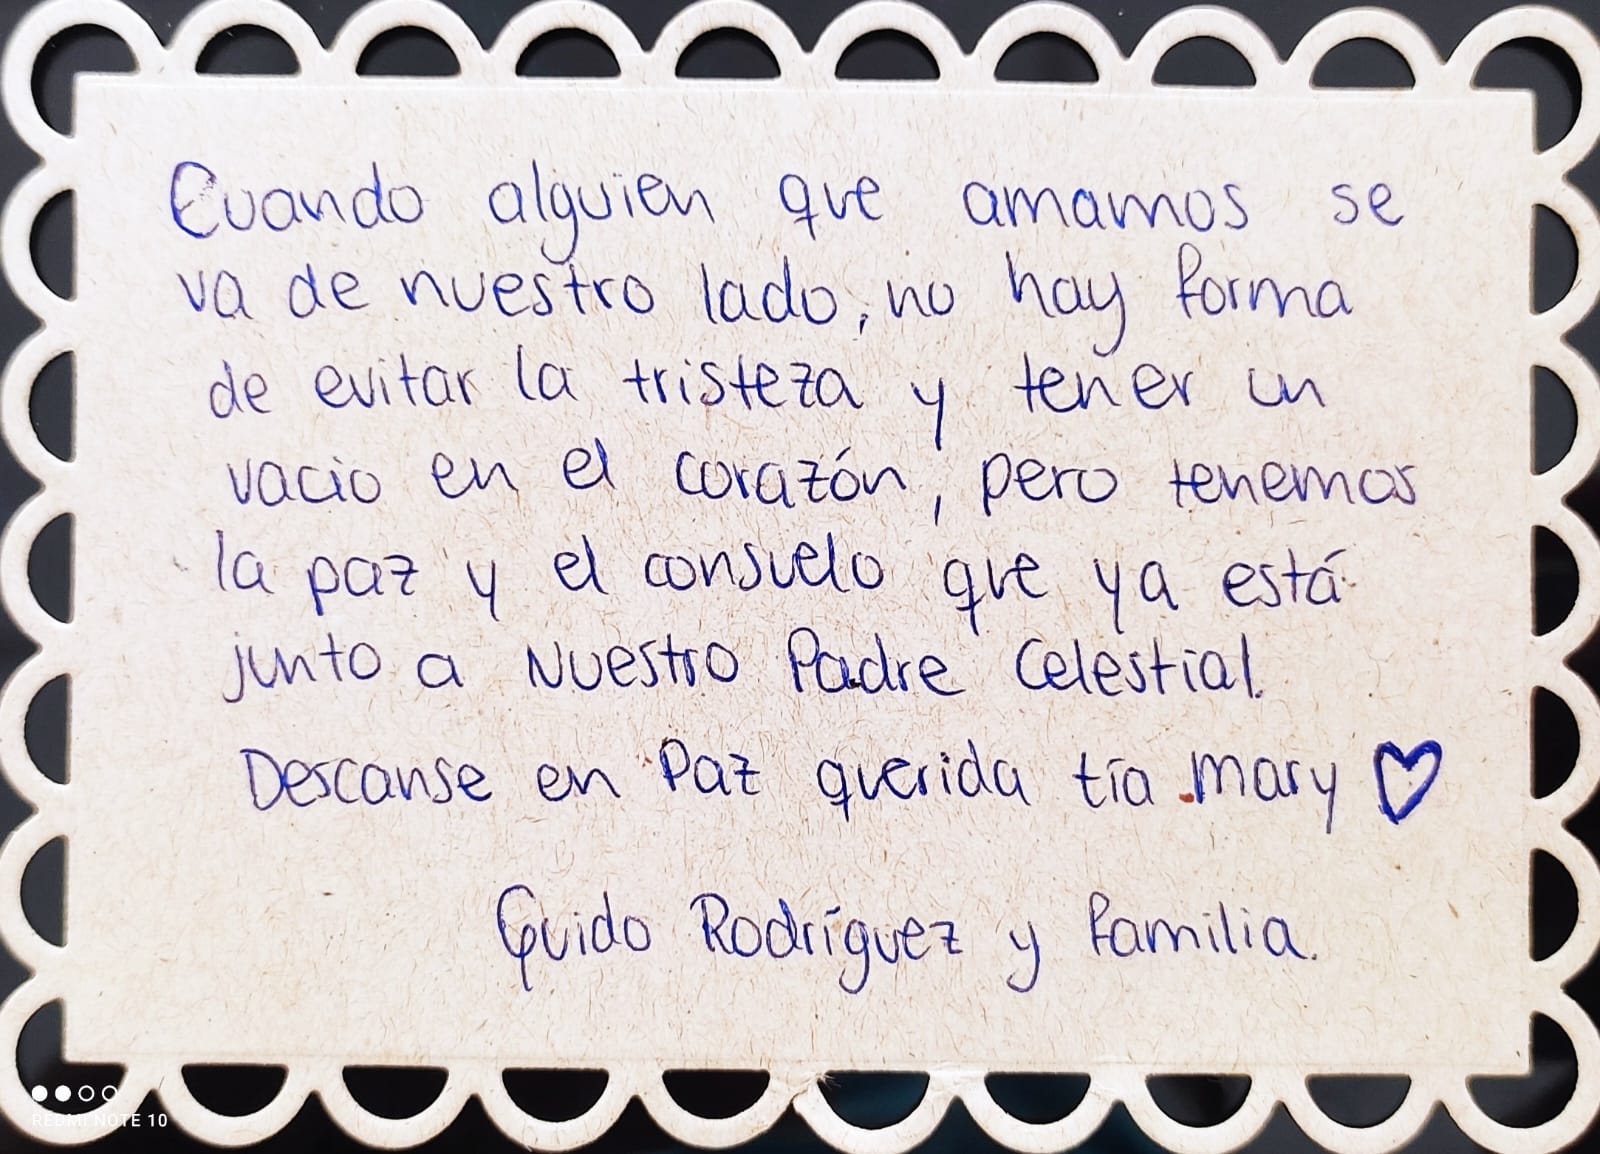 Cuando alguien que amamos se
va de nuestro lado, no hay forma
de evitar la tristeza y tener un
vacio en el corazón, pero tenemos
la paz y el consuelo que ya está
junto a Nuestro Padre Celestial.
Descanse en Paz querida tía Mary
Guido Rodríguez y familia.
REDMI NOTE 10